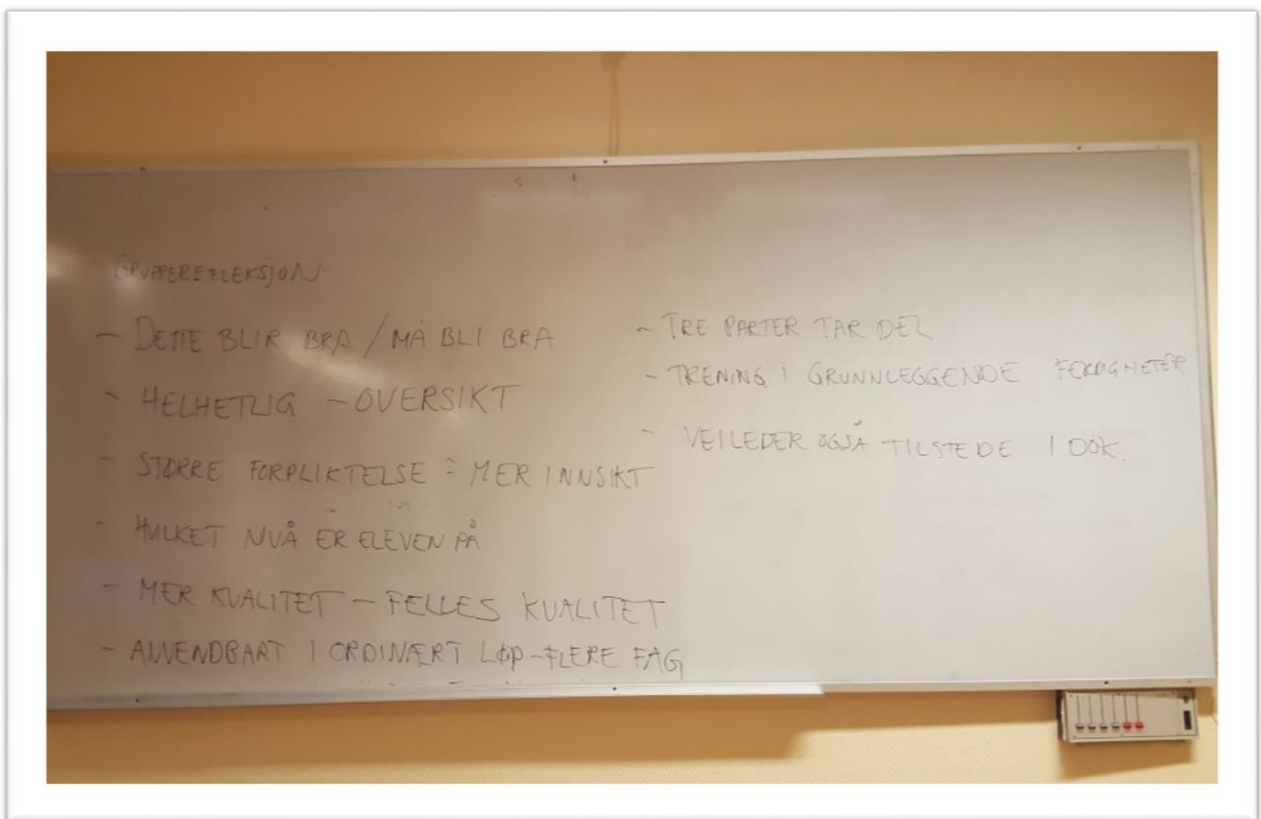 GRUPPEREFLEKSJON
- DETTE BLIR BRA / MÅ BLI BRA
- HELHETLIG - OVERSIKT
- STØRRE FORPLIKTELSE = MER INNSIKT
- HVILKET NIVÅ ER ELEVEN PÅ
- MER KVALITET - FELLES KVALITET
- ANVENDBART I ORDINÆRT LØP - FLERE FAG
- TRE PARTER TAR DEL
- TRENING I GRUNNLEGGENDE FERDIGHETER
- VEILEDER OGSÅ TILSTEDE I DOK.